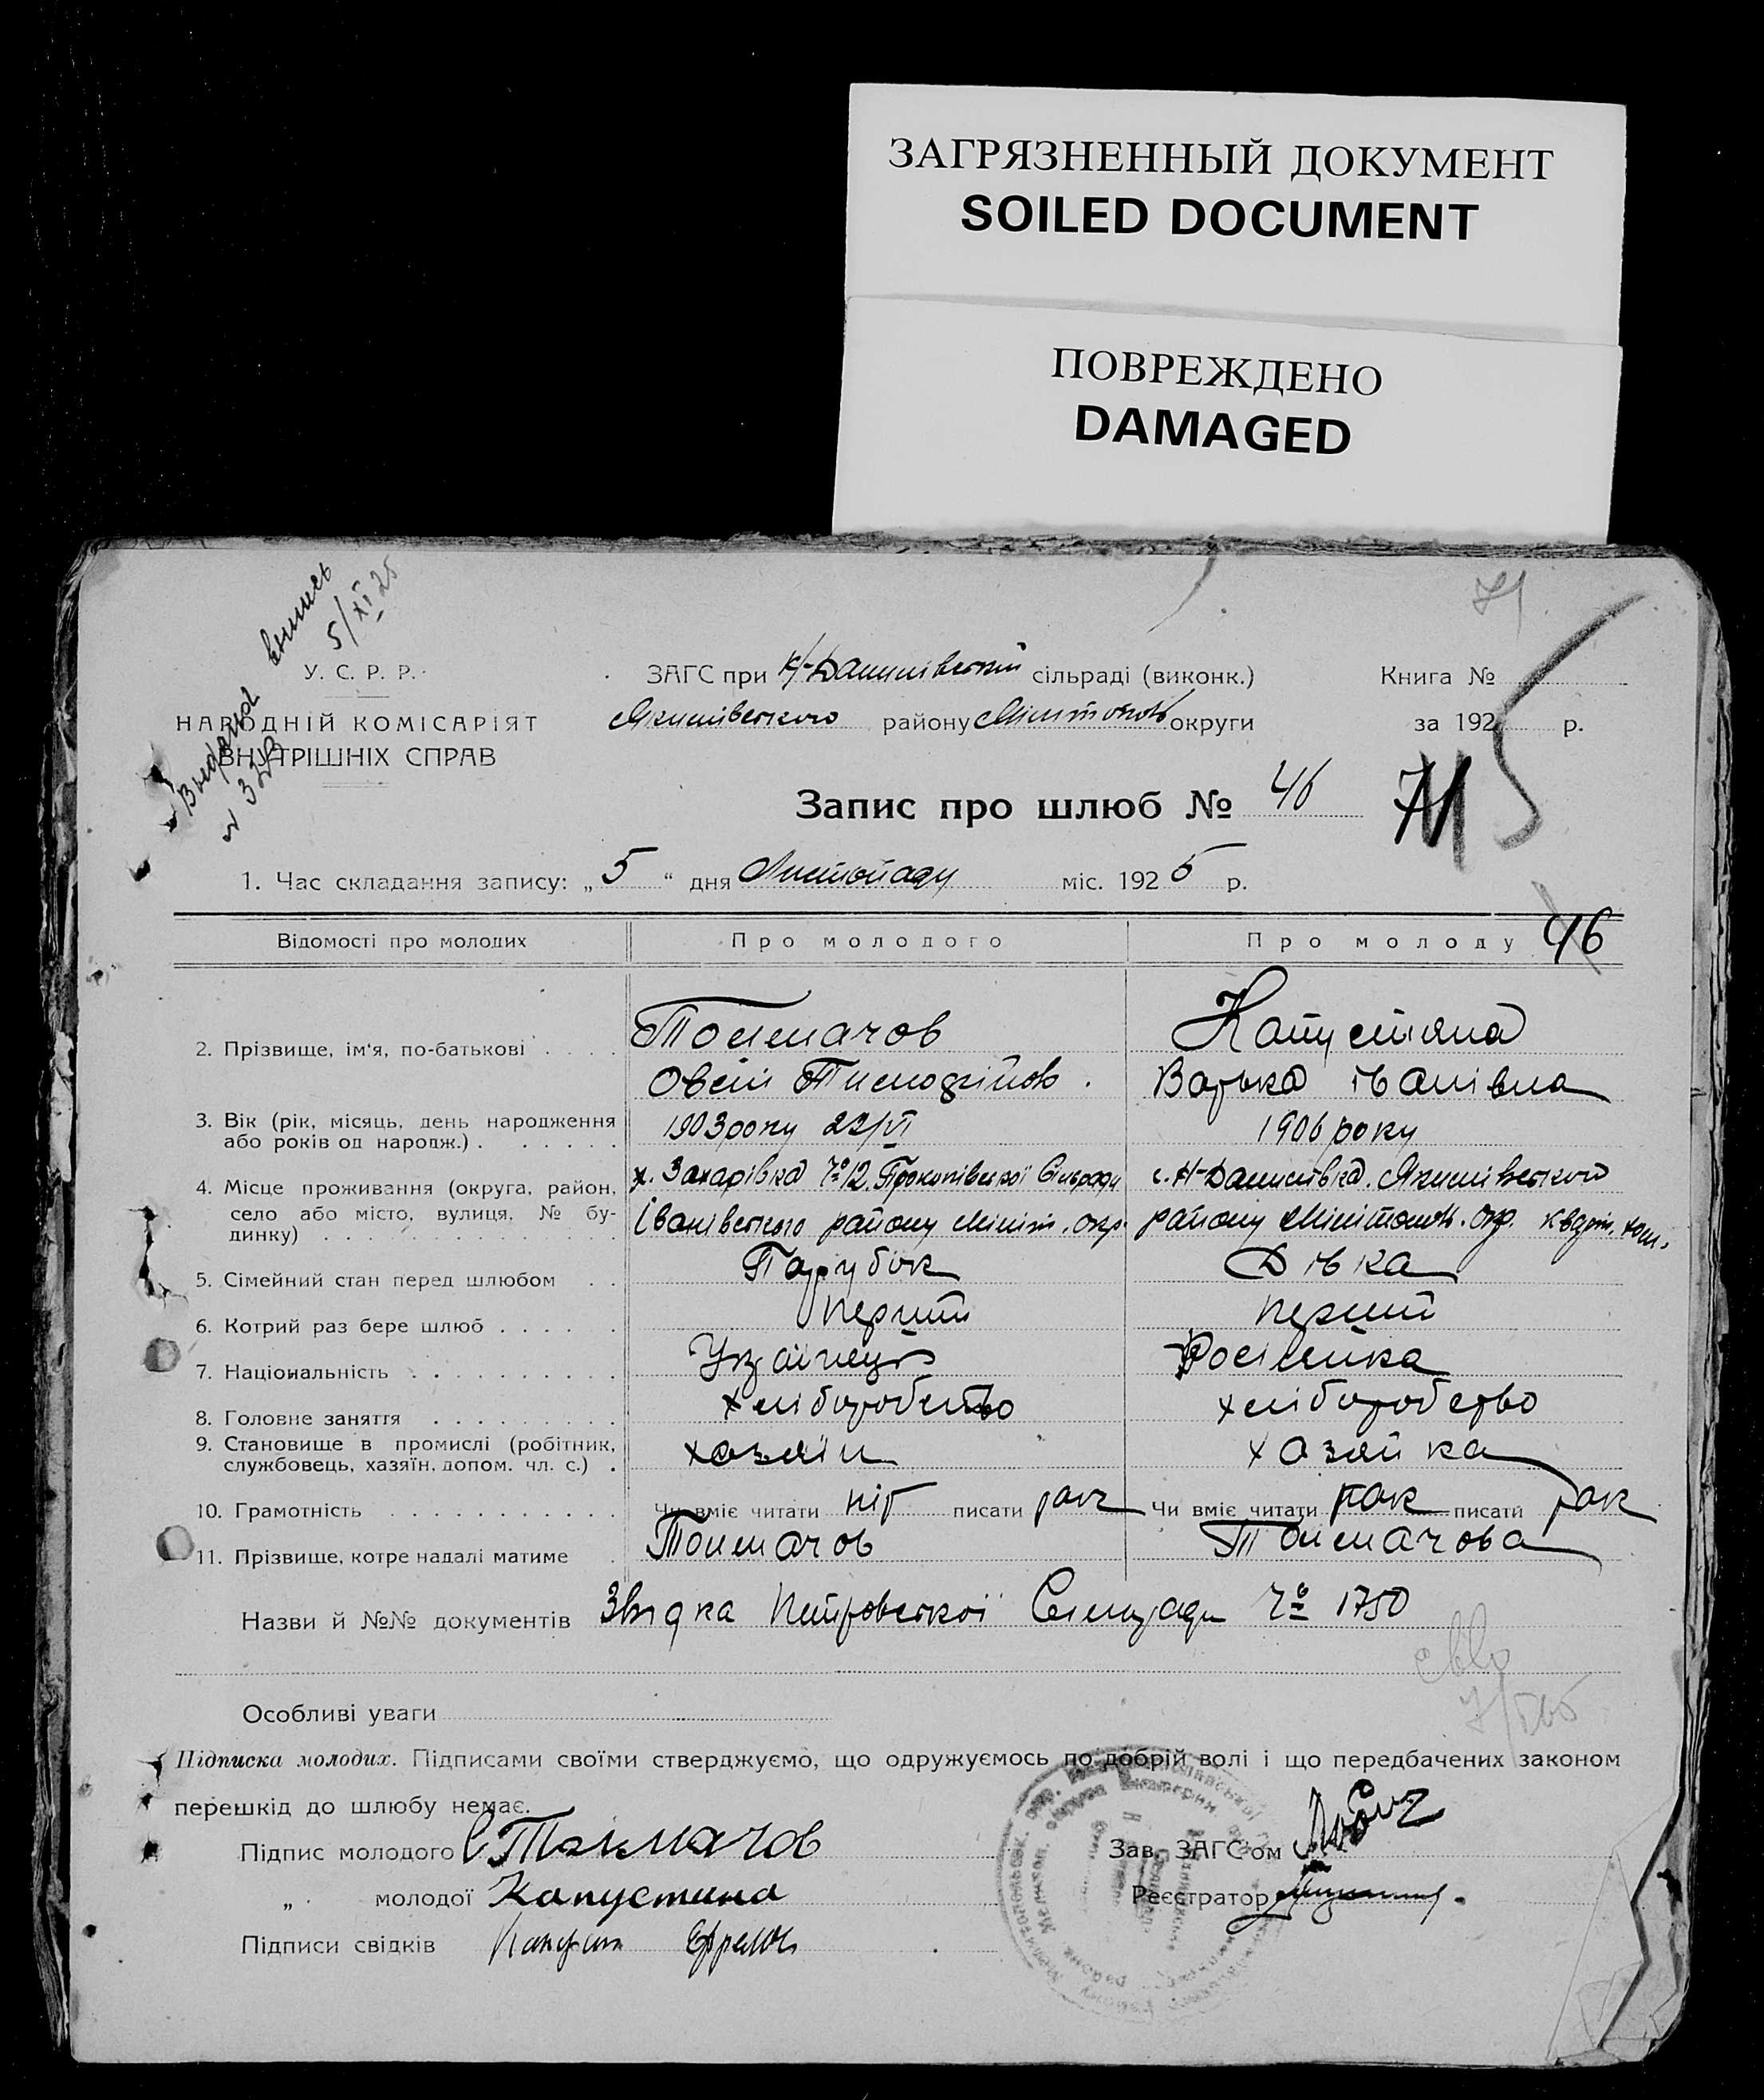 ЗАГРЯЗНЕННЫЙ ДОКУМЕНТ
SOILED DOCUMENT
ПОВРЕЖДЕНО
DAMAGED
5/XI 25
71
У. С. Р. Р.
НАРОДНІЙ КОМІСАРІЯТ
ВНУТРІШНІХ СПРАВ
ЗАГС при Н-Данилівській сільраді (виконк.)
Якимівського району Мілітопол округи
Книга №
за 192 5 р.
Запис про шлюб № 46
71
1. Час складання запису: „ 5 “ дня Листопаду міс. 192 5 р.
Відомості про молодих Про молодого Про молоду 46
2. Прізвище, ім'я, по-батькові Толмачов Капустяна
Овсій Тимофійов. Варька Іванівна
3. Вік (рік, місяць, день народження 1903 року 22/VI 1906 року
або років од нарож.)
4. Місце проживання (округа, район, х. Захарівка № 12. Прокопівської Сільради с. Н-Данилівка. Якимівського
село або місто, вулиця, № бу- Іванівського районуМіліт. окр. району Мілітопол. окр.
динку)
5. Сімейний стан перед шлюбом Парубок Дівка
6. Котрий раз бере шлюб перший перший
7. Національність Українець Росіянка
8. Головне заняття хліборобство хліборобство
9. Становище в промислі (робітник, хазяїн хазяйка
службовець, хазяїн, допом. чл. с.)
10. Грамотність Чи вміє читати писати Чи вміє читати так писати так
11. Прізвище, котре надалі матиме Толмачов Толмачова
Назви й №№ документів Звідка Петровської Сельради № 1750
Особливі уваги
Підписка молодих. Підписами своїми стверджуємо, що одружуємось по добрій волі і що передбачених законом
перешкід до шлюбу немає.
Підпис молодого Толмачов Зав. ЗАГС'ом
„ молодої Капустина Реєстратор
Підписи свідків